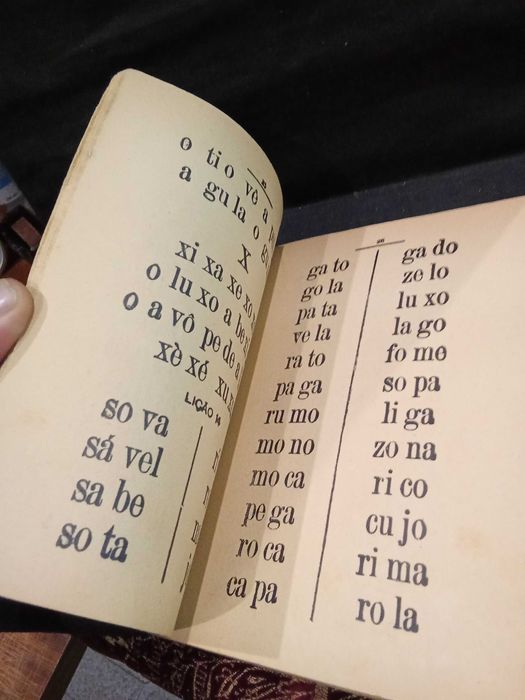 o ti o vê a
a gu la o
X
xi xa xe xo
o lu xo a
o a vô pe de a
xè xé xu
LIÇÃO
so va
sá vel
sa be
so ta
26
ga to
go la
pa ta
ve la
ra to
pa ga
ru mo
mo no
mo ca
pe ga
ro ca
ca pa
ga do
ze lo
lu xo
la go
fo me
so pa
li ga
zo na
ri co
cu jo
ri ma
ro la